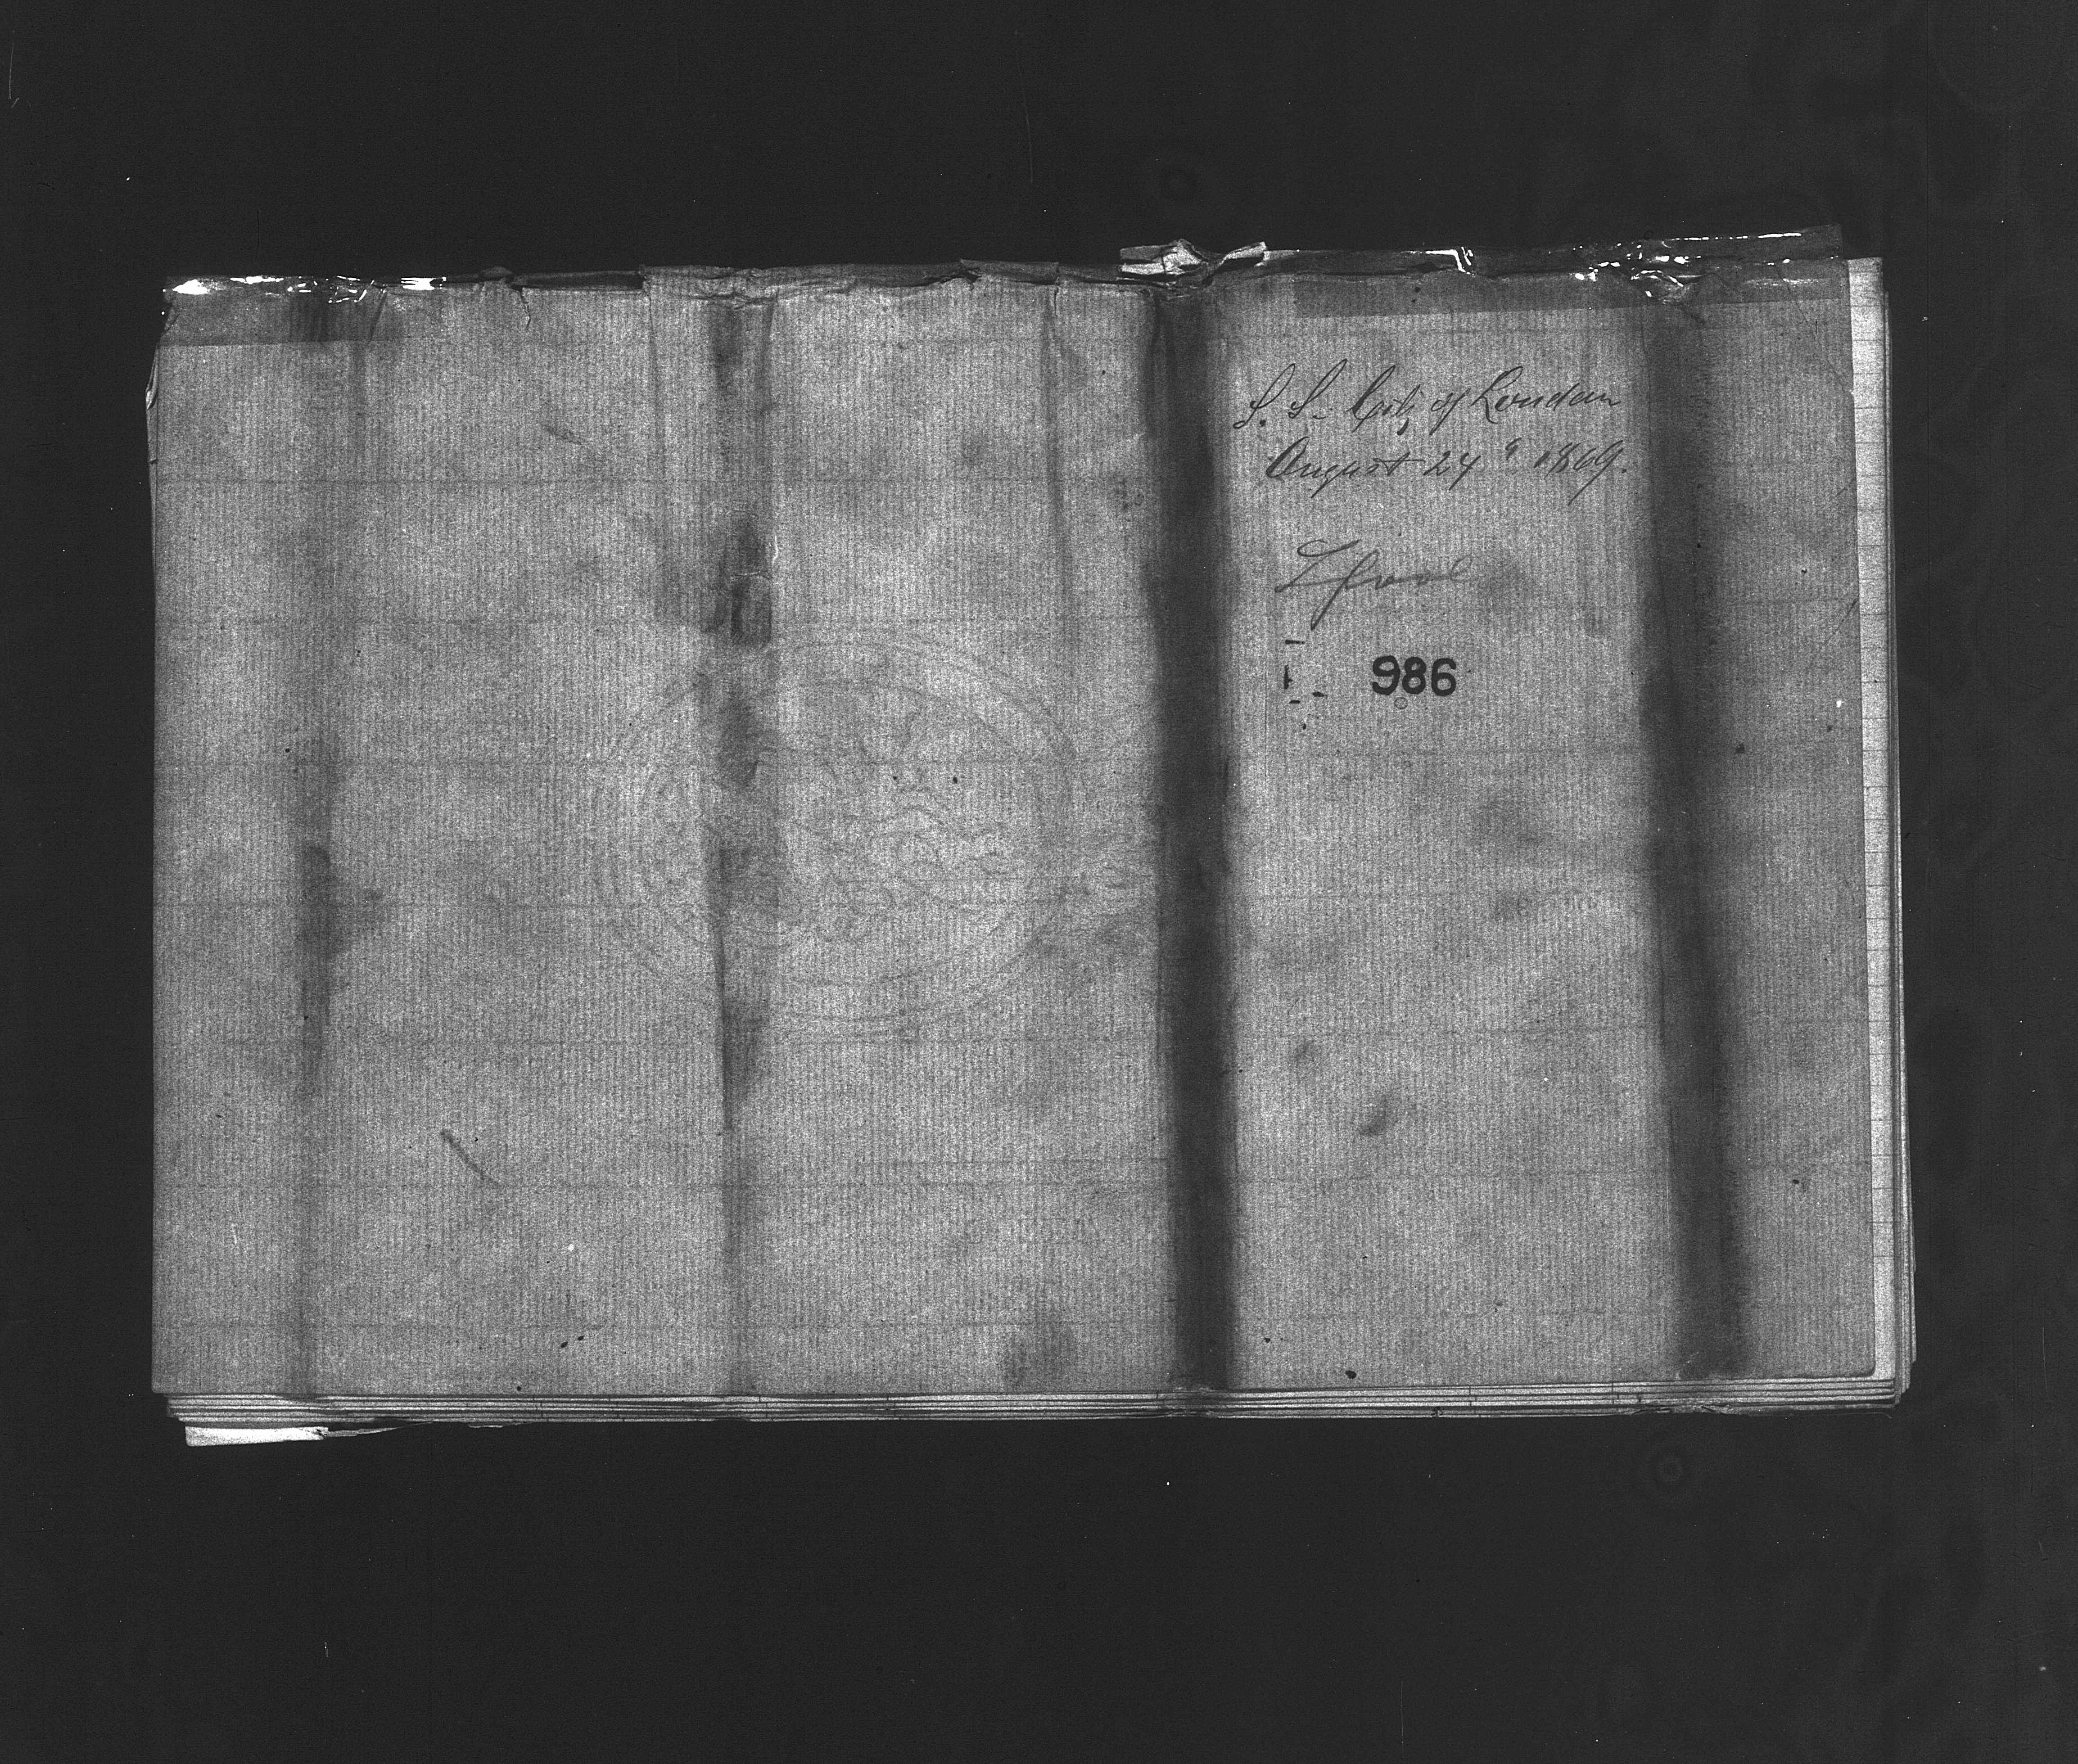 S. S. City of London
August 24" 1869.
L'pool
986